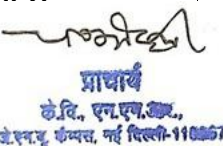 प्राचार्य
के.वि., एन.एम.आर.,
जे.एन.यू. कैम्पस, नई दिल्ली-110067